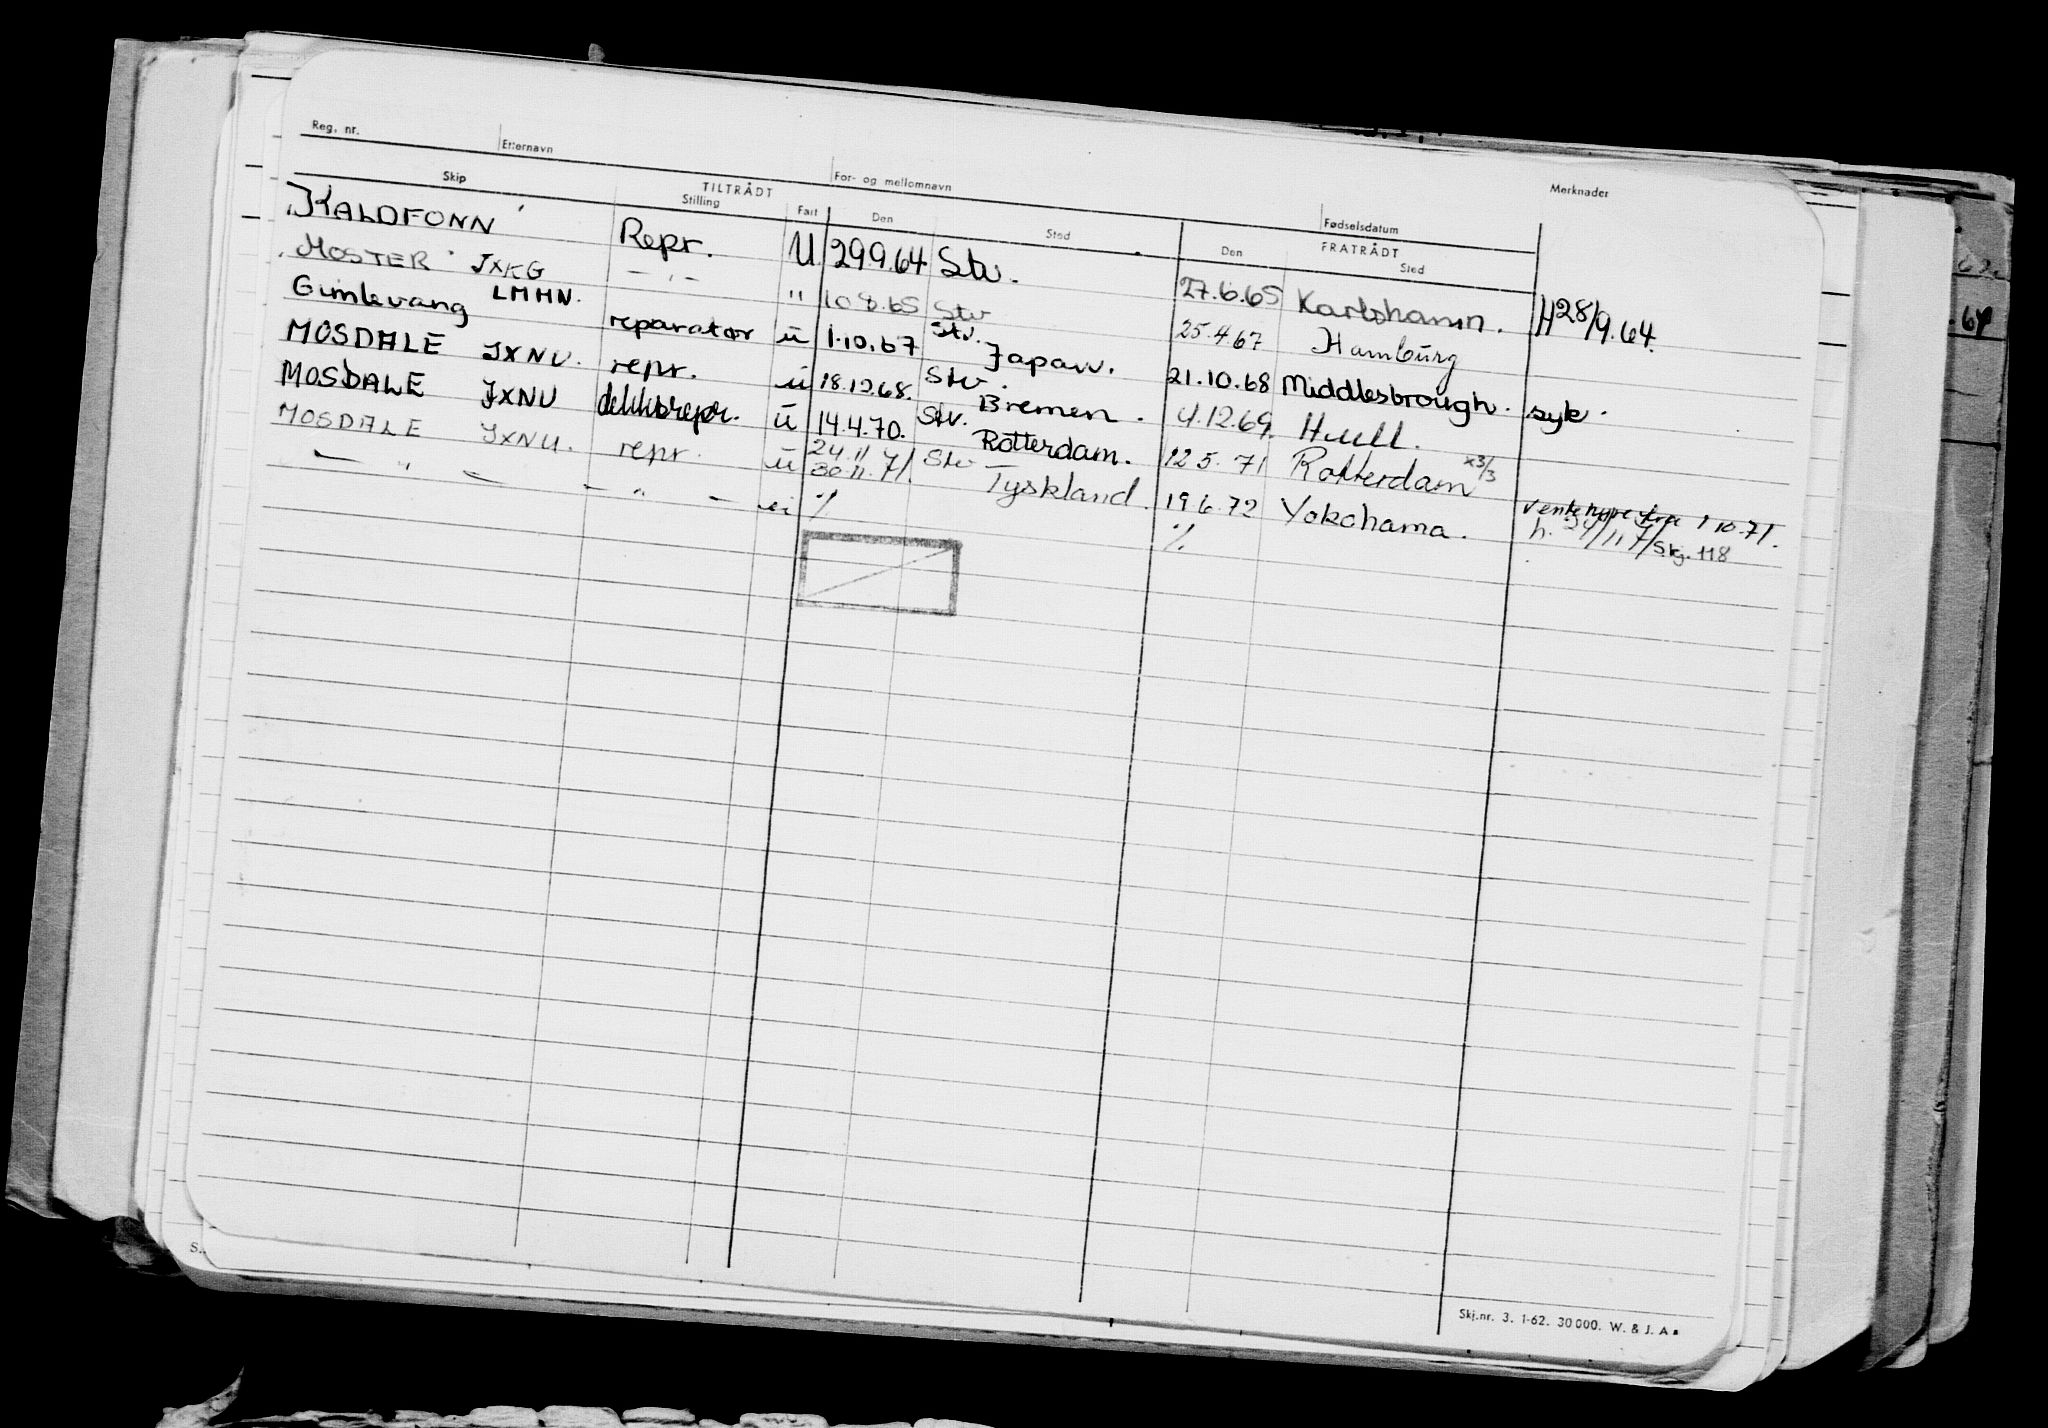 Reg. nr. Etternavn For- og mellomnavn Fødselsdatum Merknader
TILTRÅDT FRATRÅDT
Skip Stilling Fart Den Sted Den Sted
"KALDFONN" Repr. U 29.9.64 Stv. 27.6.65 Karlshamn. H28/9.64.
"MOSTER" JXKG - " - " 10.8.65 Stv 25.4.67 Hamburg
Gimlevang LMHN. reparatør ū 1.10.67 Stv. Japan. 21.10.68 Middlesbrough. syk.
MOSDALE JXNU. repr. ū 18.12.68. Stv. Bremen. 4.12.69. Hull.
MOSDALE JXNU dekksrepr. ū 14.4.70. Stv. Rotterdam. 12 5. 71 Rotterdam x3/3
MOSDALE JXNU. repr. ū 24.11 30.11.71. Stv Tyskland. 19 6. 72 Yokohama. Ventehyre fra 1 10.71.
— " — — " — ū % % h. 24/11 71 Skj. 118
.67
S.
Skj.nr. 3. 1-62. 30 000. W. & J. A s